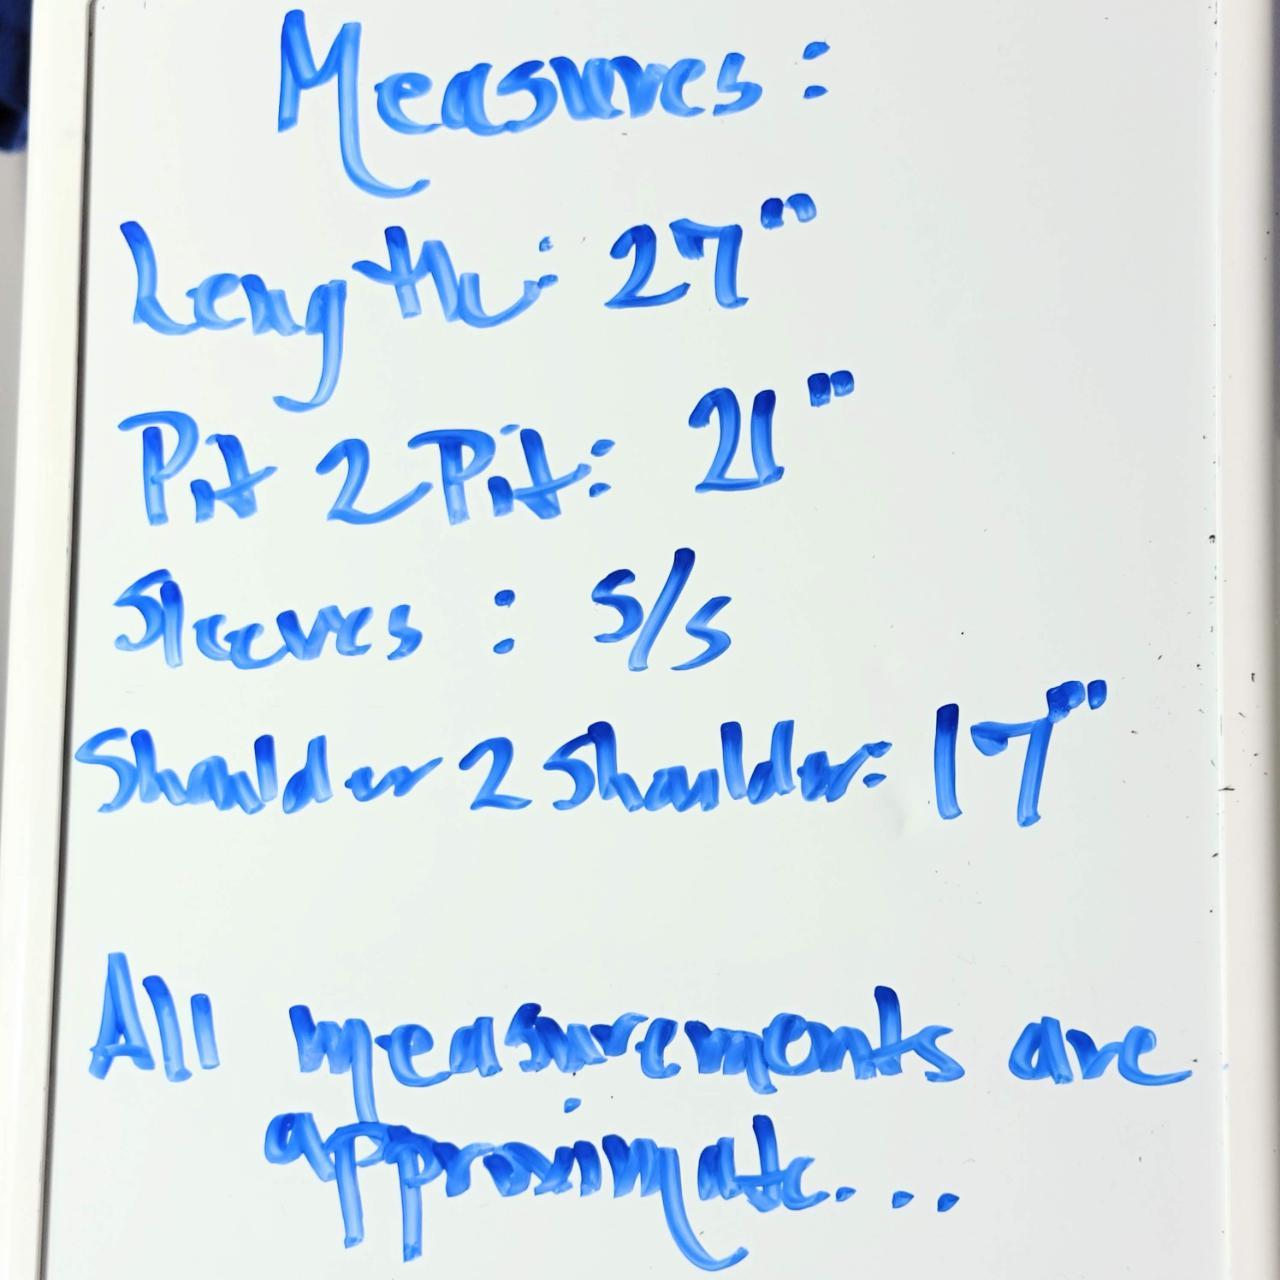 Measures:
Length: 27"
Pit 2 Pit: 21"
Sleeves: s/s
Shoulder 2 Shoulder: 17"
All measurements are
approximate...